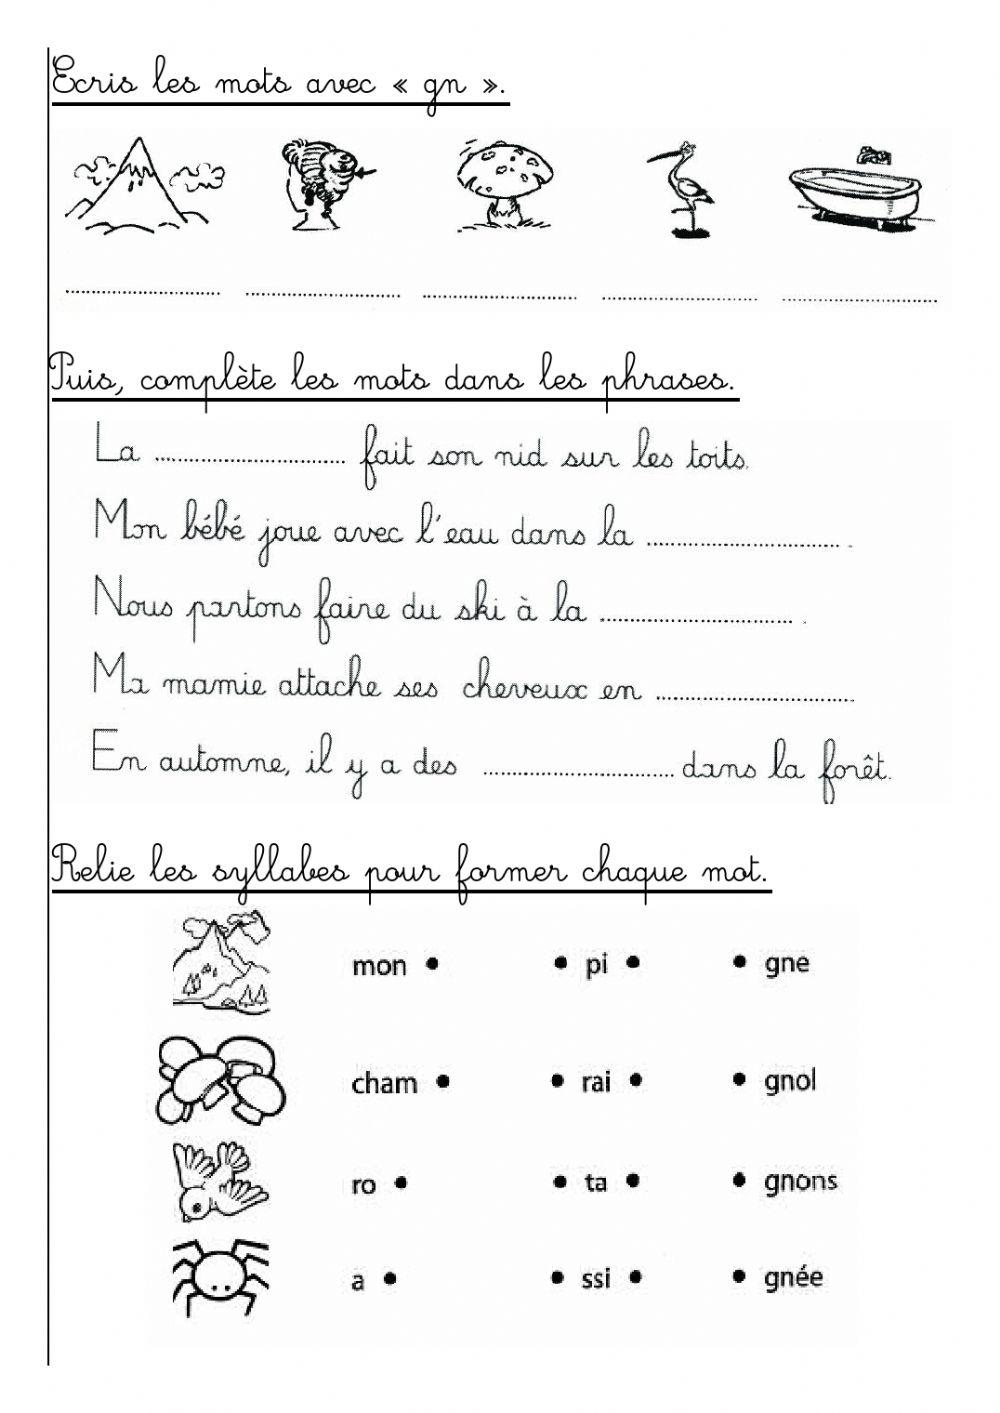 Ecris les mots avec « gn ».
Puis, complète les mots dans les phrases.
La .............................. fait son nid sur les toits.
Mon bébé joue avec l'eau dans la .............................. .
Nous partons faire du ski à la .............................. .
Ma mamie attache ses cheveux en ..............................
En automne, il y a des .............................. dans la forêt.
Relie les syllabes pour former chaque mot.
mon • • pi • • gne
cham • • rai • • gnol
ro • • ta • • gnons
a • • ssi • • gnée